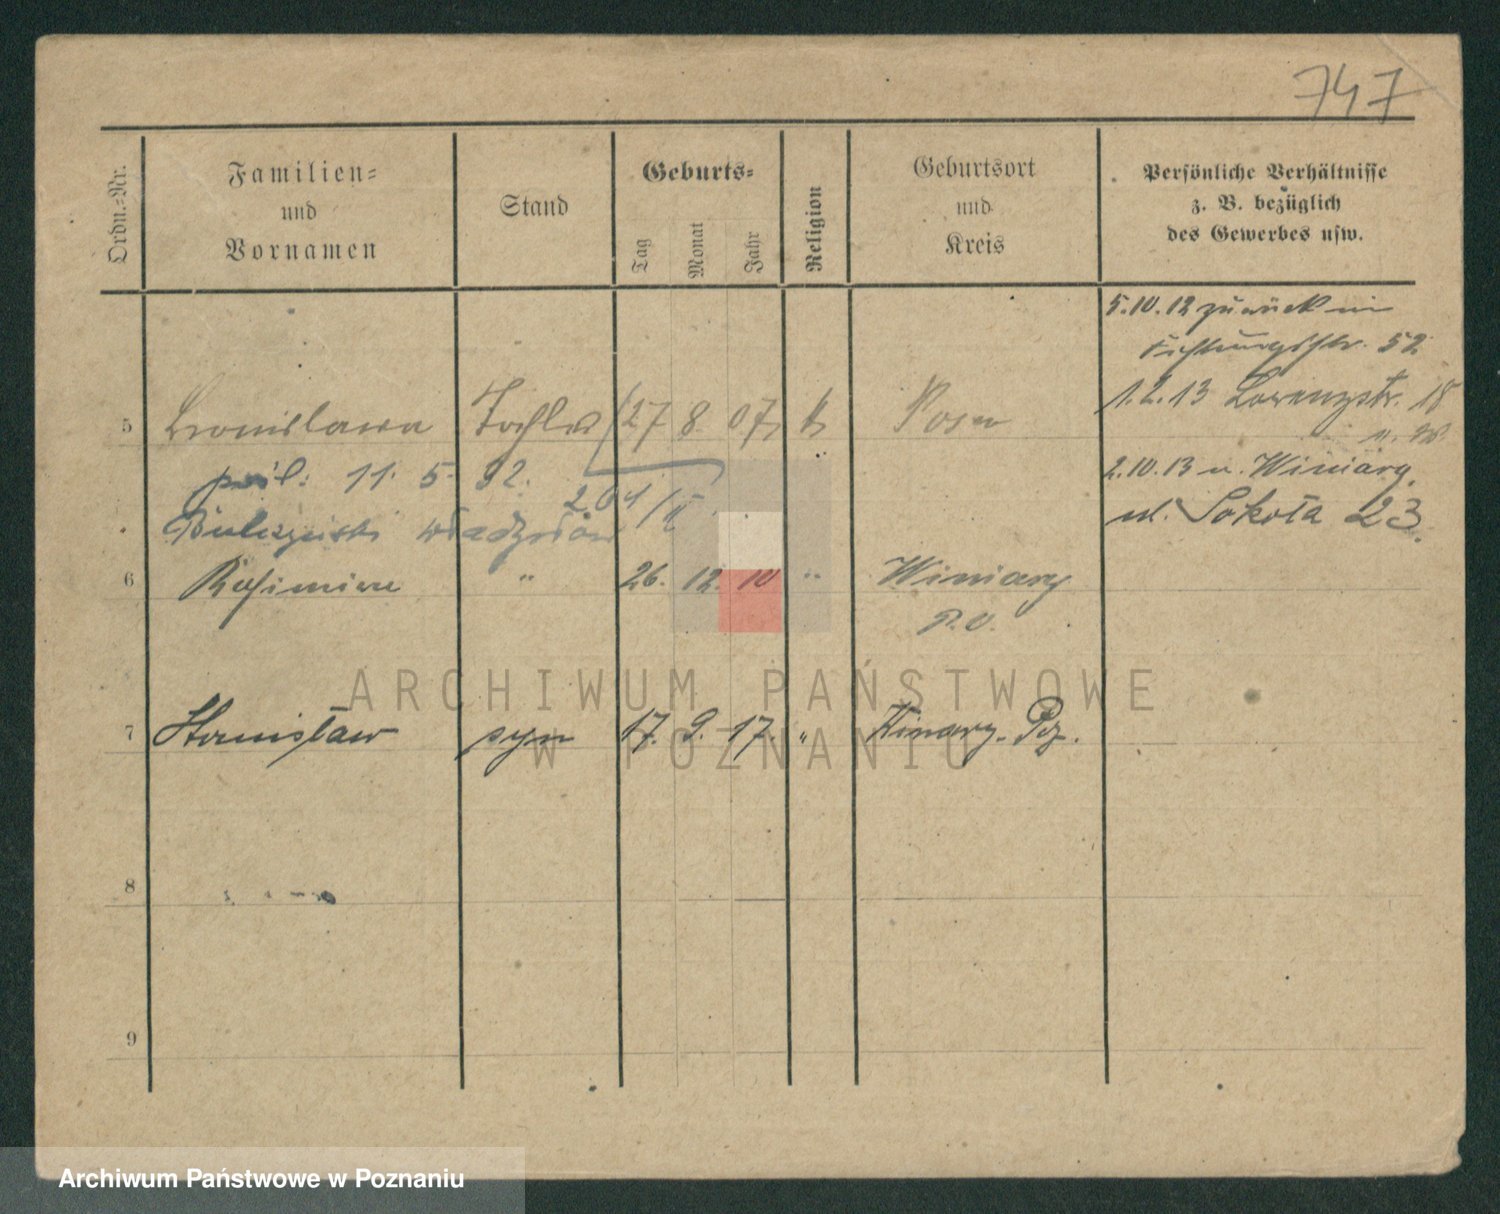 747
Ordn.-Nr.
Familien-
und
Vornamen
Stand
Geburts-
Tag
Monat
Jahr
Religion
Geburtsort
und
Kreis
Persönliche Verhältnisse
z. B. bezüglich
des Gewerbes usw.
5.10.12 zurück in
52
1.2.13 Lorenzstr. 18
5 Bronislawa Tochter 27 8. 07 k Posen
11. 5. 32.
204/II
2.10.13 n. Winiary
ul. Sokoła 23.
6 Kasimira " 26. 12. 10 " Winiary
P.O.
7 Stanisław syn 17. 9. 17. " Winary. Poz.
8
9
ARCHIWUM PAŃSTWOWE
W POZNANIU
Archiwum Państwowe w Poznaniu